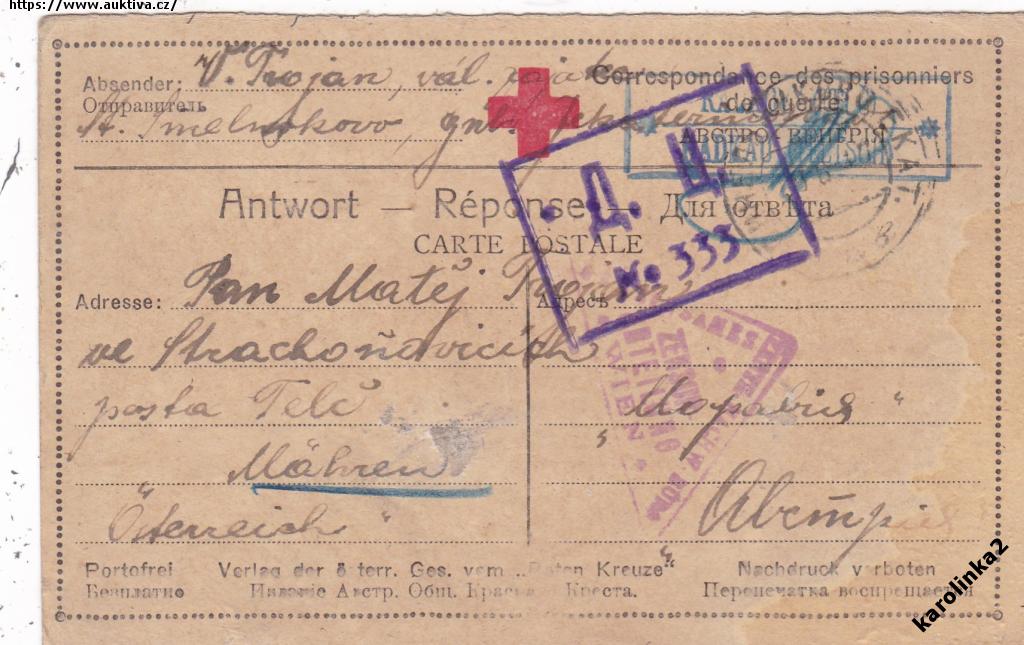 https://www.auktiva.cz/
Absender: V. Trojan, vál. zajatec
Отправитель
st. Sinelnikovo, gub.
Correspondance des prisonniers
de guerre
АВСТРО-ВЕНГРІЯ
Antwort — Réponse — Для отвѣта
CARTE POSTALE
Д. Ц.
No 333
Adresse: Pan Matěj Trojan
Адресъ
ve Strachoňovicích
pošta Telč
Mähren
„Österreich“
„Моравия“
Австрия“
WIEN
Portofrei Verlag der österr. Ges. vom „Roten Kreuze“ Nachdruck verboten
Безплатно Изданіе Австр. Общ. Краснаго Креста. Перепечатка воспрещается
karolinka2